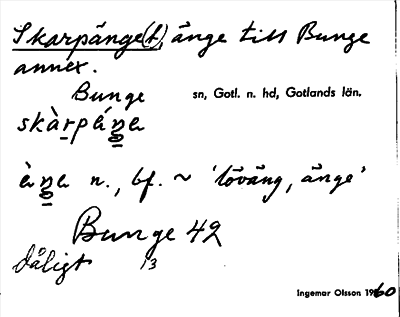 Skarpänge(t), änge till Bunge
annex.
Bunge sn, Gotl. n. hd, Gotlands län.
skàrpáŋa
àŋa n., bf. ~ 'löväng, änge'
Bunge 42
dåligt 13
Ingemar Olsson 1960